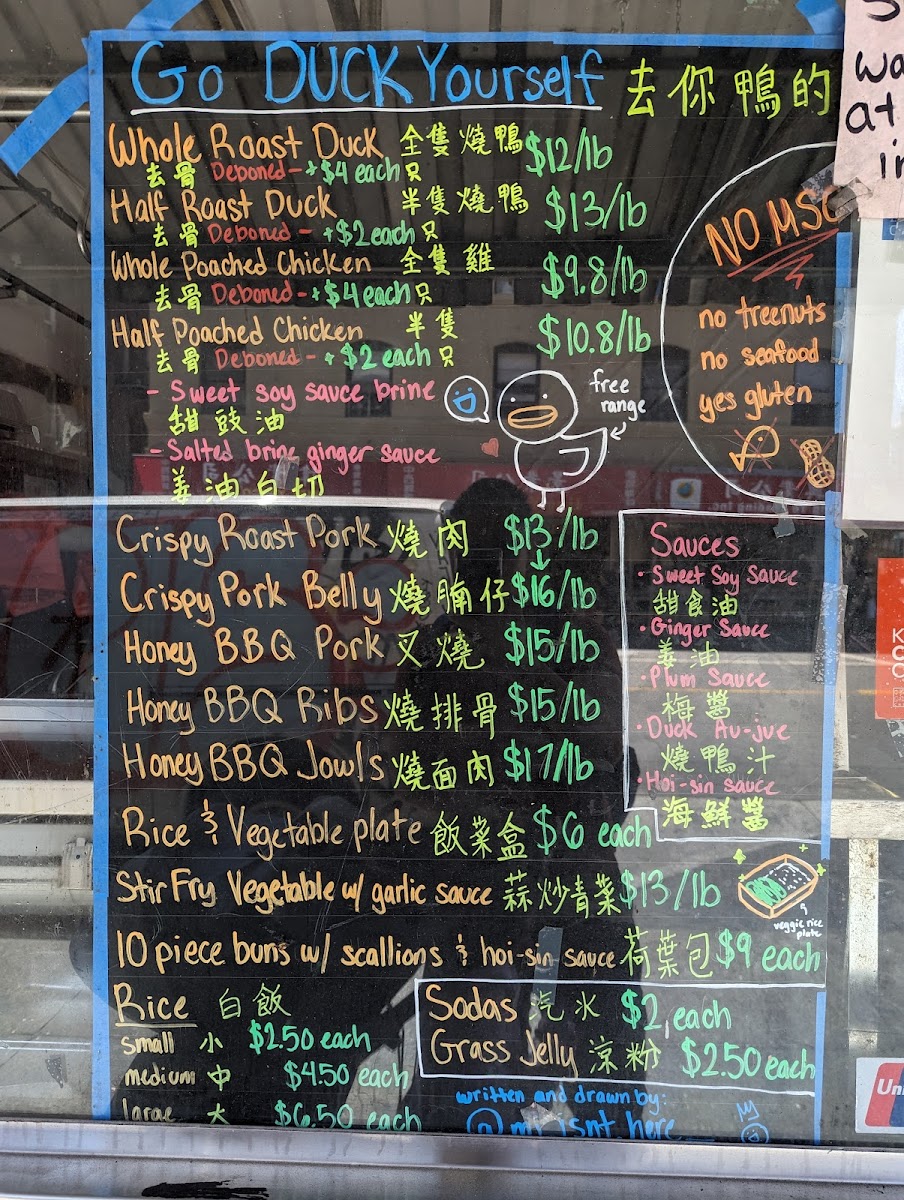 Go DUCK Yourself 去你鴨的
Whole Roast Duck 全隻燒鴨 $12/lb
去骨 Deboned - +$4 each 只
Half Roast Duck 半隻燒鴨 $13/lb
去骨 Deboned - +$2 each 只
Whole Poached Chicken 全隻雞 $9.8/lb
去骨 Deboned - +$4 each 只
Half Poached Chicken 半隻 $10.8/lb
去骨 Deboned - +$2 each 只
- Sweet soy sauce brine
甜豉油
- Salted brine ginger sauce
姜油白切
free
range
NO MSG
no treenuts
no seafood
yes gluten
Crispy Roast Pork 燒肉 $13/lb
Crispy Pork Belly 燒腩仔 $16/lb
Honey BBQ Pork 叉燒 $15/lb
Honey BBQ Ribs 燒排骨 $15/lb
Honey BBQ Jowls 燒面肉 $17/lb
Rice & Vegetable plate 飯菜盒 $6 each
Stir Fry Vegetable w/ garlic sauce 蒜炒青菜 $13/lb
10 piece buns w/ scallions & hoi-sin sauce 荷葉包 $9 each
Sauces
• Sweet Soy Sauce
甜食油
• Ginger Sauce
姜油
• Plum Sauce
梅醬
• Duck Au-jue
燒鴨汁
• Hoi-sin sauce
海鮮醬
veggie rice
plate
Rice 白飯
small 小 $2.50 each
medium 中 $4.50 each
large 大 $6.50 each
Sodas 汽水 $2 each
Grass Jelly 涼粉 $2.50 each
written and drawn by:
isnt here
wa
at
in